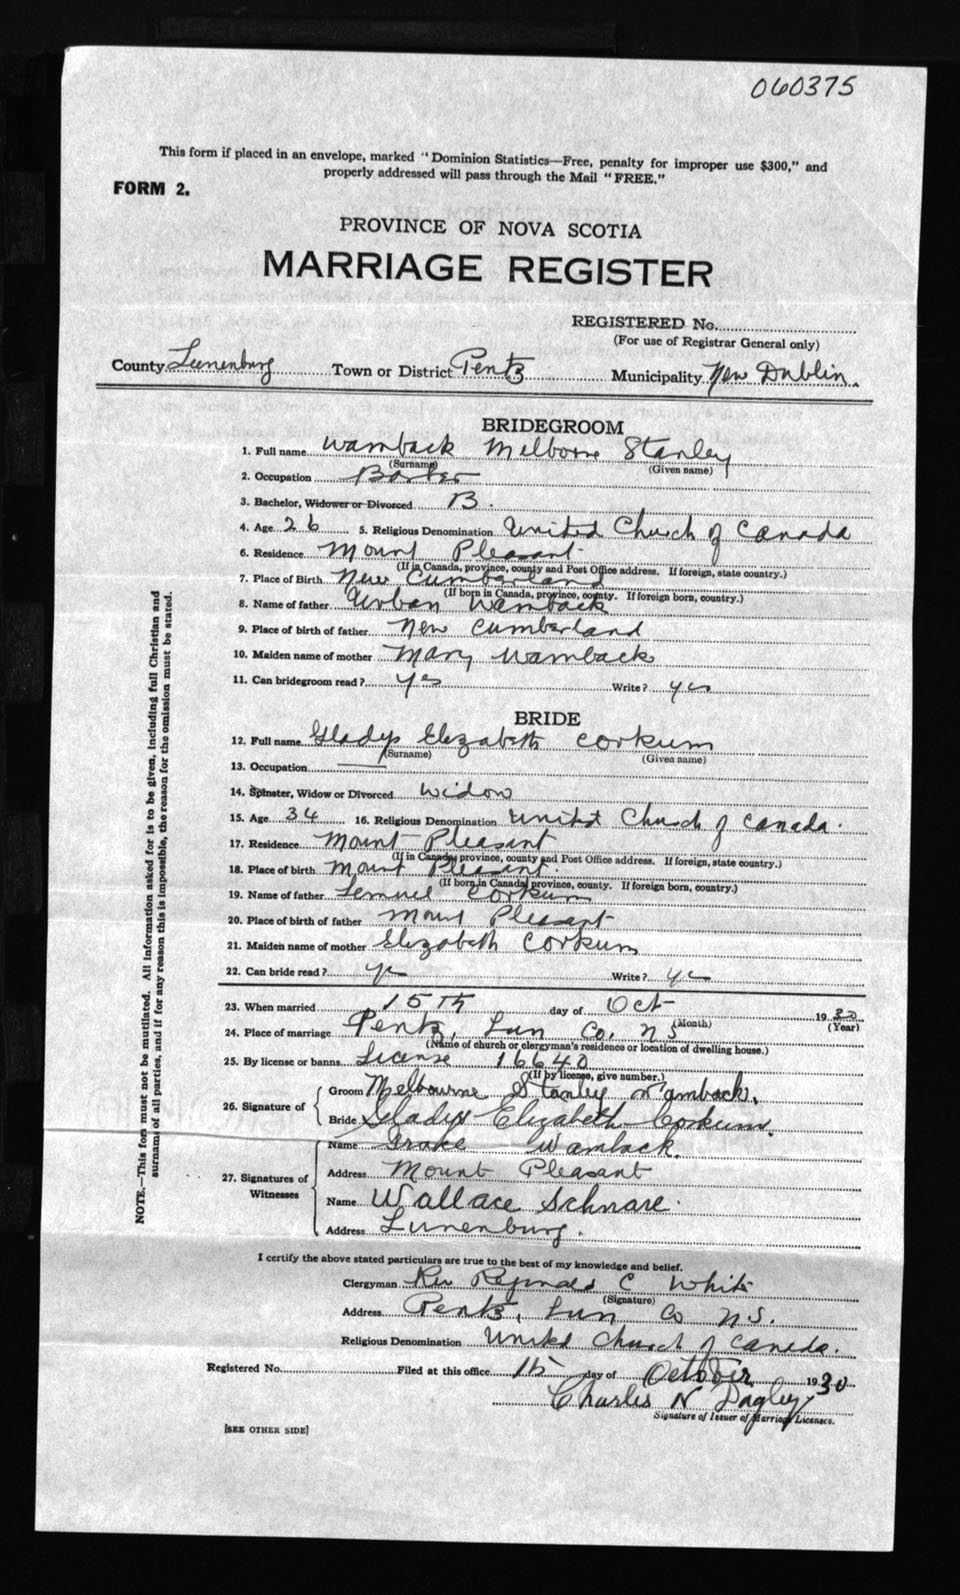 060375
This form if placed in an envelope, marked "Dominion Statistics—Free, penalty for improper use $300," and
properly addressed will pass through the Mail "FREE."
FORM 2.
PROVINCE OF NOVA SCOTIA
MARRIAGE REGISTER
REGISTERED No.
(For use of Registrar General only)
County Lunenburg Town or District Pentz Municipality New Dublin.
BRIDEGROOM
1. Full name Wamback Melborne Stanley
(Surname) (Given name)
2. Occupation
3. Bachelor, Widower or Divorced B.
4. Age 26 5. Religious Denomination United Church of Canada
6. Residence Mount Pleasant
(If in Canada, province, county and Post Office address. If foreign, state country.)
7. Place of Birth New Cumberland
(If born in Canada, province, county. If foreign born, country.)
8. Name of father Urban Wamback
9. Place of birth of father New Cumberland
10. Maiden name of mother Mary Wamback
11. Can bridegroom read? yes Write? yes
BRIDE
12. Full name Gladys Elizabeth Corkum
(Surname) (Given name)
13. Occupation
14. Spinster, Widow or Divorced Widow
15. Age 34 16. Religious Denomination United Church of Canada.
17. Residence Mount Pleasant
(If in Canada, province, county and Post Office address. If foreign, state country.)
18. Place of birth Mount Pleasant.
(If born in Canada, province, county. If foreign born, country.)
19. Name of father Lemuel Corkum
20. Place of birth of father Mount Pleasant
21. Maiden name of mother Elizabeth Corkum
22. Can bride read? yes Write? yes
23. When married 15th day of Oct 1930
(Month) (Year)
24. Place of marriage Pentz, Lun Co. N S
(Name of church or clergyman's residence or location of dwelling house.)
25. By license or banns License 16640
(If by license, give number.)
26. Signature of Groom Melbourne Stanley Wamback.
Bride Gladys Elizabeth Corkum.
27. Signatures of Witnesses Name Wamback.
Address Mount Pleasant
Name Wallace Schnare.
Address Lunenburg.
I certify the above stated particulars are true to the best of my knowledge and belief.
Clergyman Rev Reginald C White
(Signature)
Address Pentz, Lun Co N.S.
Religious Denomination United Church of Canada.
Registered No. Filed at this office 15 day of October 1930
Charles N Dagley
Signature of Issuer of Marriage Licenses.
[SEE OTHER SIDE]
NOTE.—This form must not be mutilated. All information asked for is to be given, including full Christian and
surnames of all parties, and if for any reason this is impossible, the reason for the omission must be stated.